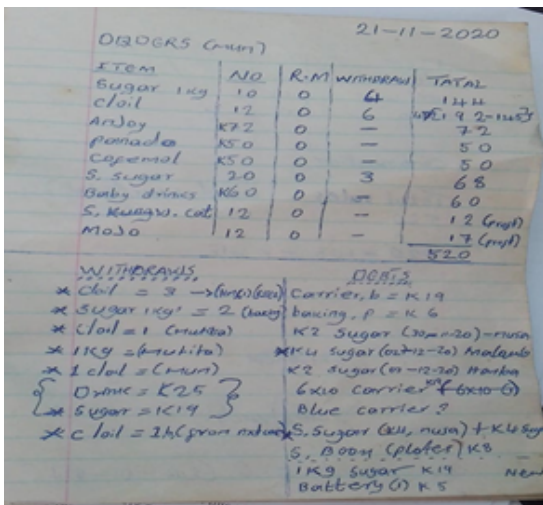 21-11-2020
ORDERS (mum)
ITEM NO R.M WITHDRAW TATAL
Sugar 1kg 10 0 4 144
Cloil 12 0 6 192-145
Anjoy K72 0 - 72
Pamado K50 0 - 50
Capemol K50 0 - 50
S. sugar 20 0 3 68
Baby drinks K60 0 - 60
S. cat 12 0 - 12 (profit)
MOJO 12 0 - 17 (profit)
520
WITHDRAWLS
* Cloil = 3 →
* Sugar 1kg' = 2 (baking)
* Cloil = 1 (Mutita)
* 1kg = (mutita)
* 1 cloil = (mum)
{ Drink = K25 }
* Sugar = K19
* cloil = 1h (from
DEBTS
Carrier, b = K19
baking, p = K6
K2 Sugar -nusa
*K4 sugar (02-12-20)
K2 sugar (01-12-20)
6x10 carrier
Blue carrier ?
S. Sugar (K4, nusa) + K4
S. Boom (plater) K8
1Kg sugar K19
Battery (1) K5